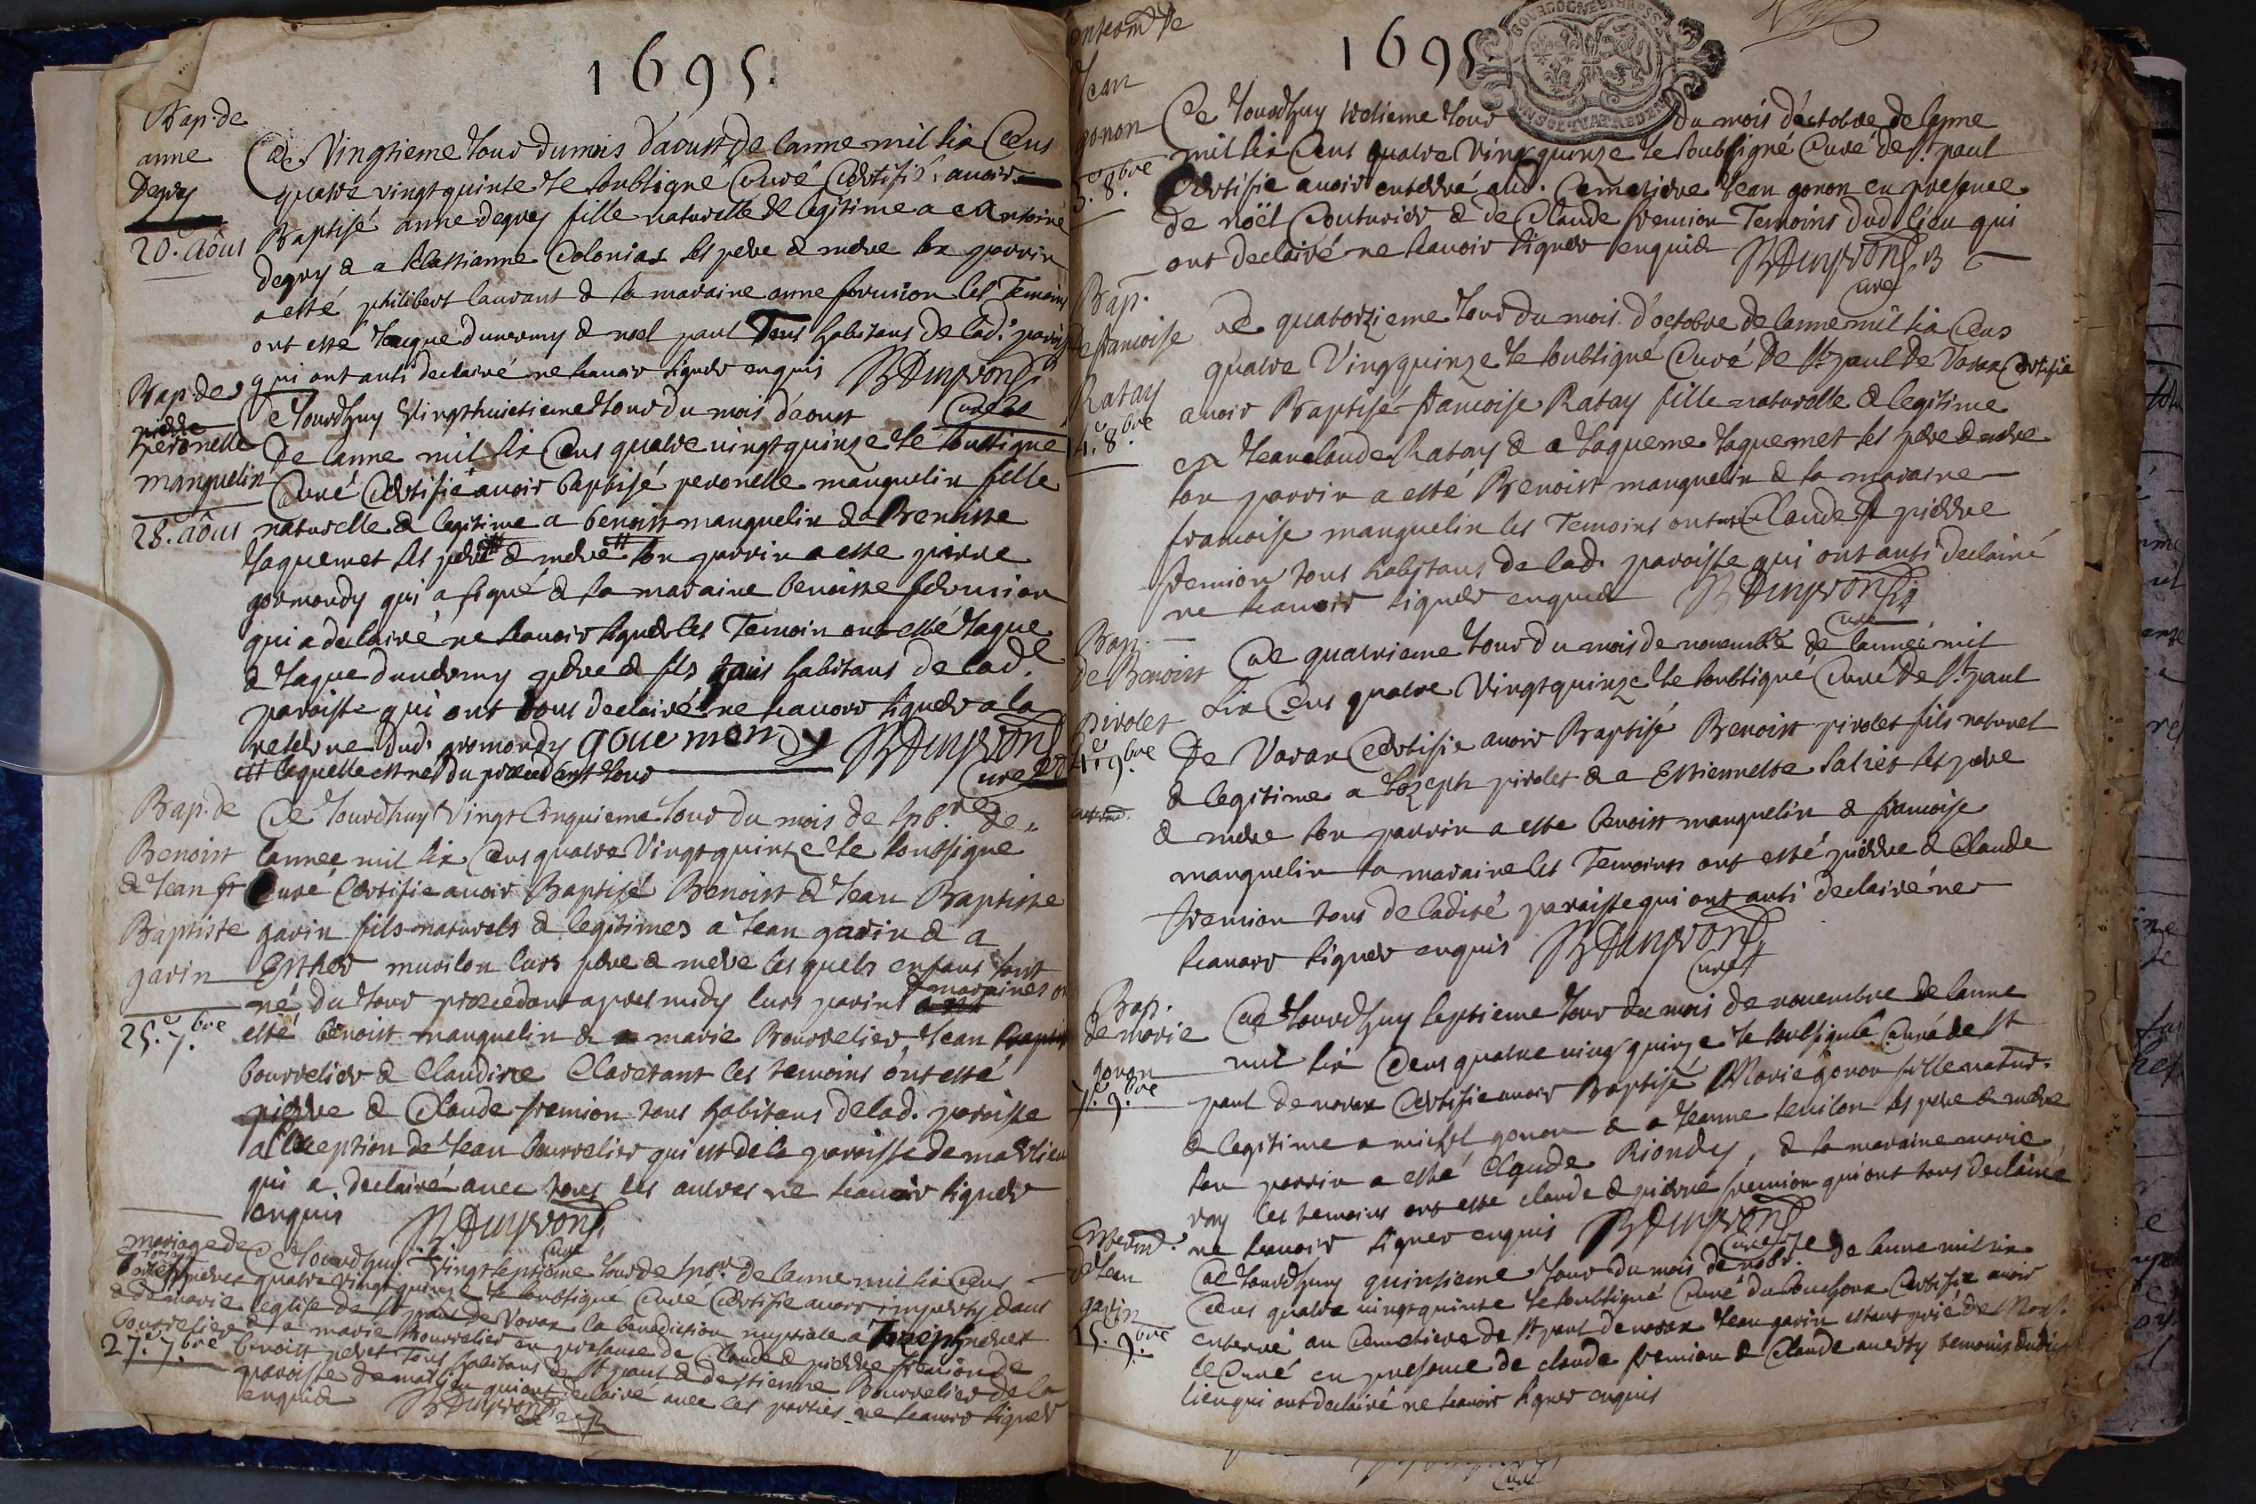 1695.
Bap. de
anne
Degrey
20.e aous
Ce Vingtieme Jour du mois d'aoust de lanne mil six Cens
quatre vingt quinze Je soubsigné Curé Certifie avoir
Baptisé anne degrey fille naturelle & legitime a antoine
degrey & a Colonias ses pere & mere son parrin
a esté philibert laurans & sa maraine anne les Temoins
ont esté Jaque dunermy & noel paul Tous habitans de lad.e
qui ont ansi declairé ne scauoir signer enquis
Curé
Bap. de
peronelle
manguelin
28.e aous
Ce Jourdhuy Vingthuictieme Jour du mois d'aoust
De lanne mil six Cens quatre vingt quinze Je soubsigne
Curé Certifie avoir baptisé peronelle manguelin fille
naturelle & legitime a benoist manguelin & a Benoiste
Jaquemet ses pere & mere son parrin a esté pierre
gormondy qui a signé & sa maraine benoiste
qui a declairé ne scauoir signer les Temoin ont esté Jaque
& Jaque dunermy pere & fils habitans de lad.e
paroisse qui ont tous declairé ne scauoir signer a la
reserve dud. gromondy
laquelle est nee du precedent Jour
Curé
Bap. de
Benoist
& Jean
Baptiste
garin
25.e 7.bre
Ce Jourdhuy Vingt Cinquieme Jour du mois de de
lannee mil six Cens quatre Vingt quinze Je soubsigne
Curé Certifie avoir Baptisé Benoist & Jean Baptiste
garin fils naturels & legitimes a Jean garin & a
Esther murilon lurs pere & mere lesquels enfans sont
né du Jour precedant apres midy lurs parins & maraines
esté benoist manguelin & marie Bourrelier, Jean
bourrelier & Claudine Claretant les temoins ont esté
pierre & Claude fremion tous habitans de lad. paroisse
a lexeption de Jean bourrelier qui est de la paroisse de marlieu
qui a declairé avec tous les autres ne scauoir signer
enquis
Curé
mariage de
& de marie
bourrelier
27.e 7.bre
Ce Jourdhuy Vingt septieme Jour de de lanne mil six Cens
quatre Vingt quinze Je soubsigne Curé Certifie avoir imparty dans
leglise de St paul de Varax la benediction nuptiale a Joseph
& a marie Bourrelier en presance de Claude & pierre fremion de
benoist Tous habitans de St paul & destienne Bourrelier de la
paroisse de marlieu qui ont declairé avec les parties ne scauoir signer
enquis
1695.
Jean
gonon
8.bre
Ce Jourdhuy Jour du mois d'octobre de lanne
mil six Cens quatre Vingt quinze Je soubsigné Curé de St paul
Certifie avoir enterré au Cemetiere Jean gonon en presence
de noël Couturier & de Claude fremion Temoins dud. lieu qui
ont declairé ne scauoir signer enquis
Curé
Bap.
de francoise
Ratay
8.bre
Ce quatorzieme Jour du mois d'octobre de lanne mil six Cens
quatre Vingt quinze Je soubsigné Curé de St paul de Varax Certifie
avoir Baptisé francoise Ratay fille naturelle & legitime
a Jean claude Ratay & a Jaqueme Jaquemet ses pere & mere
son parrin a esté Benoist manguelin & sa maraine
francoise manguelin les Temoins ont esté Claude & pierre
fremion tous habitans de lad. paroisse qui ont ansi declairé
ne scauoir signer enquis
Curé
Bap.
de Benoist
pirolet
4.e 9.bre
Ce quatrieme Jour du mois de novembre de lannee mil
six Cens quatre Vingt quinze Je soubsigné Curé de St paul
De Varax Certifie avoir Baptisé Benoist pirolet fils naturel
& legitime a Joseph pirolet & a Estiennette ses pere
& mere son parrin a esté benoist manguelin & francoise
manguelin sa maraine les Temoins ont esté pierre & Claude
fremion tous de ladite paroisse qui ont ansi declairé ne
scauoir signer enquis
Curé
Bap.
de marie
gonon
9.bre
Ce Jourdhuy septieme Jour du mois de novembre de lanne
mil six Cens quatre vingt quinze Je soubsigné Curé de St
paul de varax Certifie avoir Baptisé Marie gonon fille natur.
& legitime a michel gonon & a Jeanne ses pere & mere
son parrin a esté Claude Riondy, & sa maraine marie
ray les temoins ont esté claude & pierre fremion qui ont tous declairé
ne scauoir signer enquis
Enterm.t
de Jean
garin
15.e 9.bre
Ce Jourdhuy quinsieme Jour du mois de de lanne mil six
Cens quatre vingt quinse Je soubsigné Curé du bouchoux Certifie avoir
enterré au Cimetiere de St paul de varax Jean garin estant prié de
le Curé en presance de claude fremion & Claude temoins dudit
lieu qui ont declairé ne scauoir signer enquis